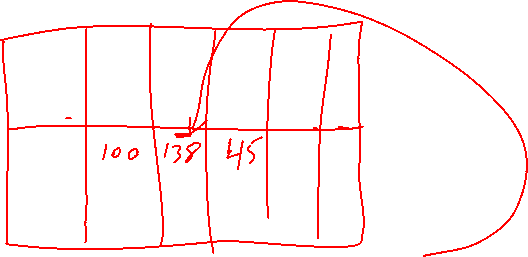 100 138 45